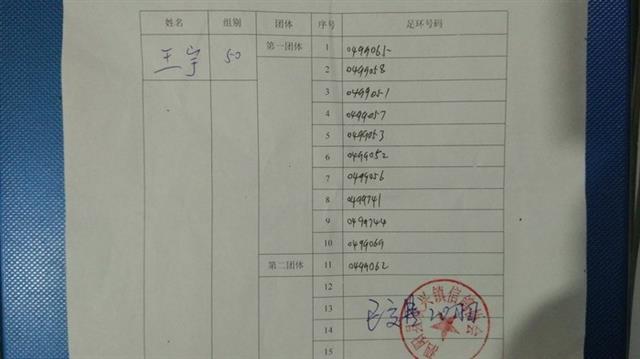 姓名 组别 团体 序号 足环号码
王宇 50 第一团体 1 0499065
2 0499058
3 0499051
4 0499057
5 0499053
6 0499052
7 0499056
8 0499741
9 0499744
10 0499069
第二团体 11 0499062
12
13
14
15
兴镇信鸽